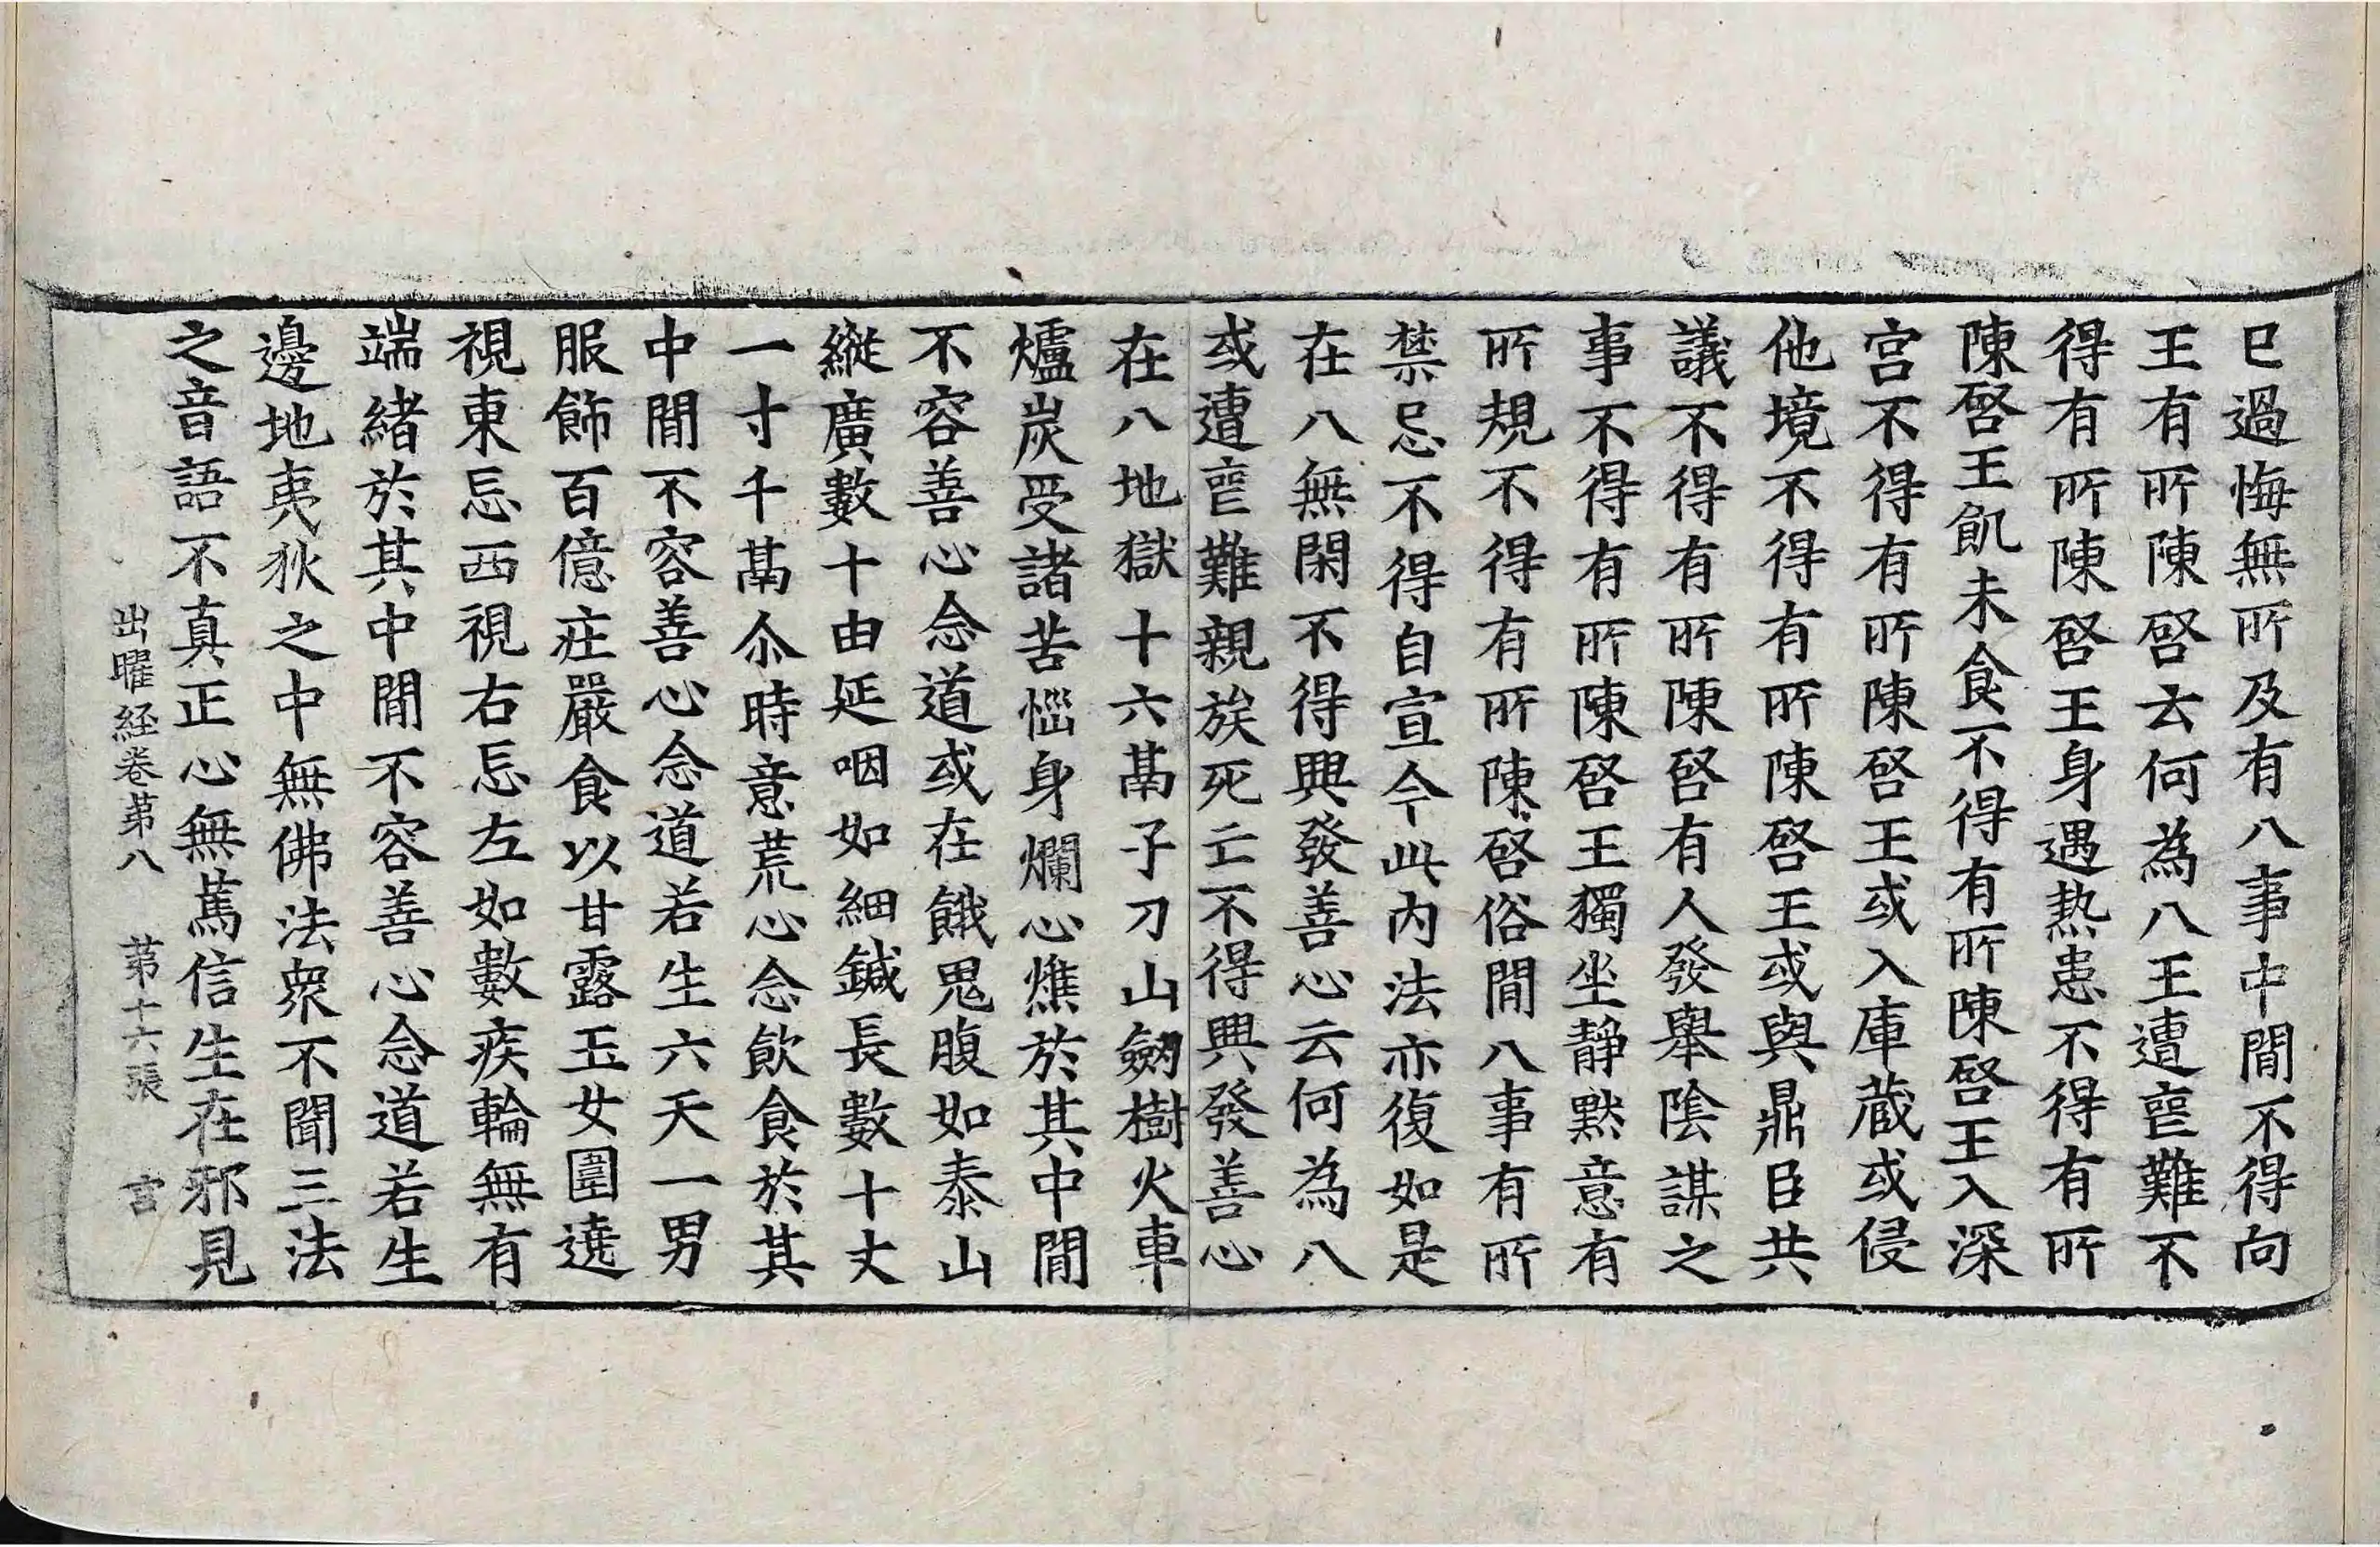 已過悔無所及有八事中閒不得向
王有所陳啓云何為八王遭喪難不
得有所陳啓王身遇热患不得有所
陳啓王飢未食不得有所陳啓王入深
宮不得有所陳啓王或入庫蔵或侵
他境不得有所陳啓王或與鼎臣共
議不得有所陳啓有人發舉陰謀之
事不得有所陳啓王獨坐静黙意有
所規不得有所陳啓俗閒八事有所
禁忌不得自宣今此內法亦復如是
在八無閑不得興發善心云何為八
或遭喪難親族死亡不得興發善心
在八地獄十六鬲子刀山劒樹火車
爐炭受諸苦惱身爛心燋於其中閒
不容善心念道或在餓鬼腹如泰山
縱廣數十由延咽如細鍼長數十丈
一寸千鬲尒時意荒心念飲食於其
中閒不容善心念道若生六天一男
服飾百億莊嚴食以甘露玉女圍遶
視東忘西視右忘左如數疾輪無有
端緒於其中閒不容善心念道若生
邊地夷狄之中無佛法衆不聞三法
之音語不真正心無篤信生在邪見
出曜経卷第八 第十六張 宮